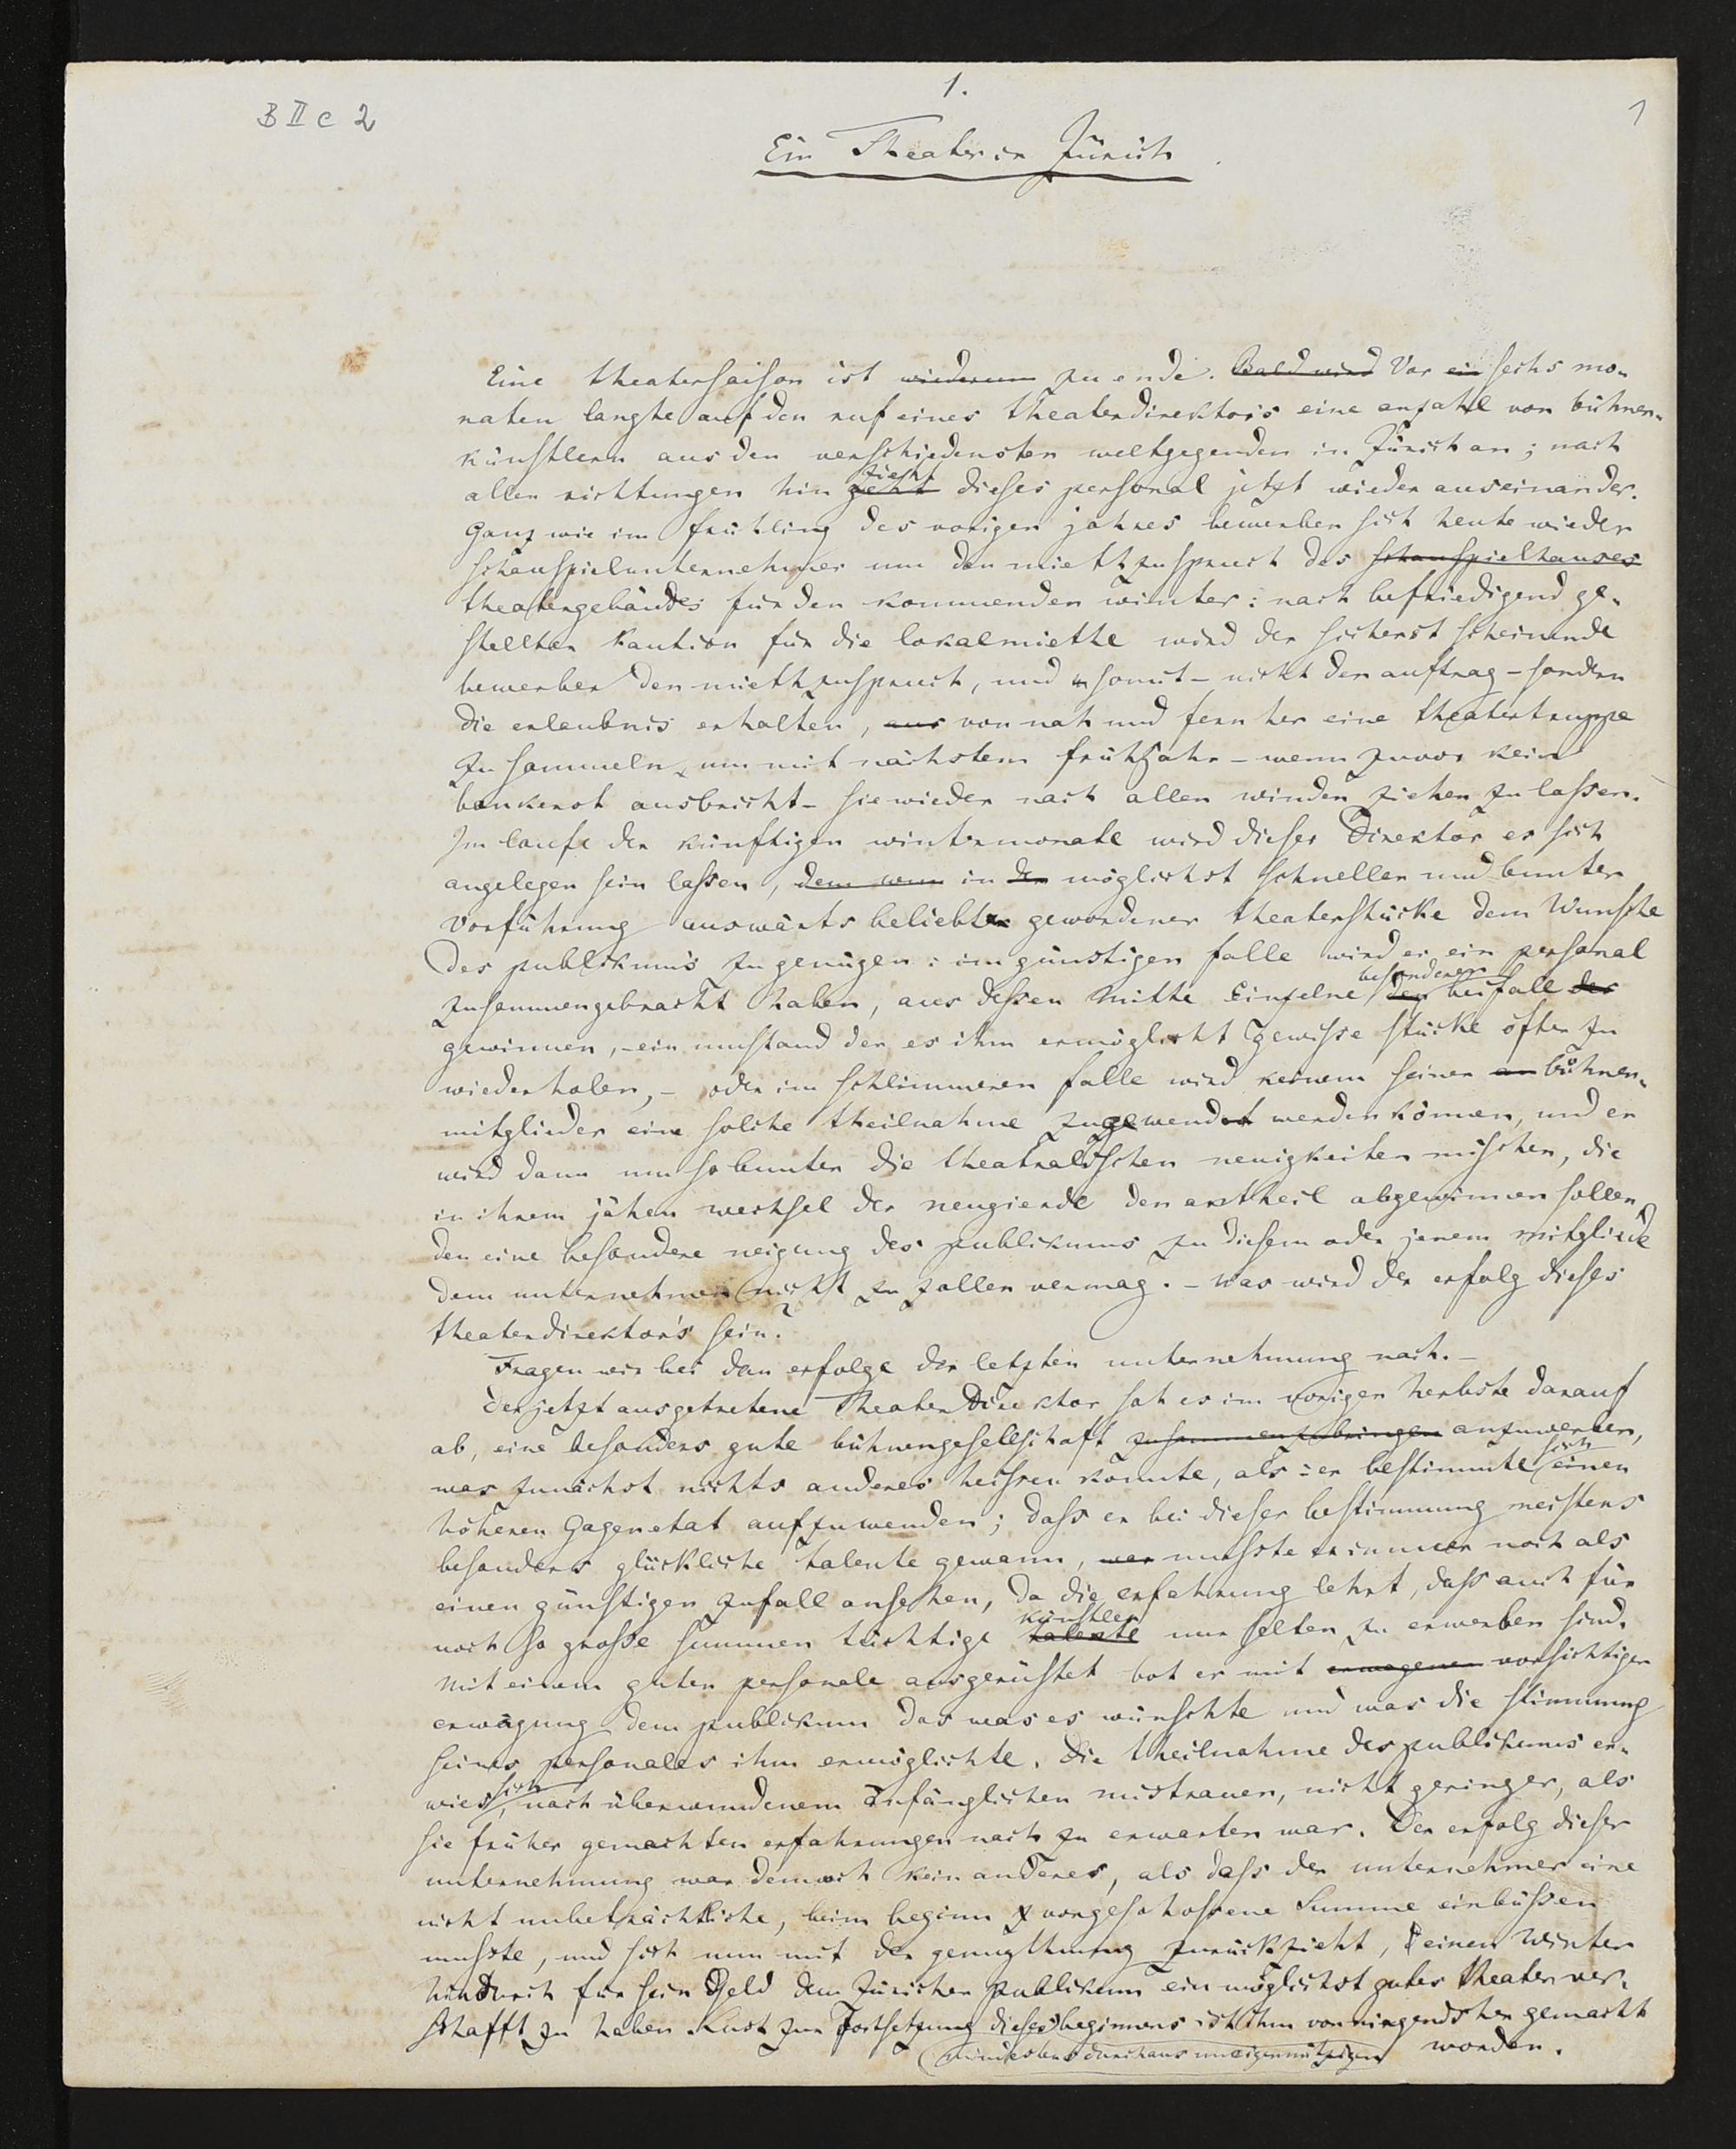 1.
B II c 2
1
Ein Theater in Zürich.
Eine theatersaison ist wiederum zu ende. Bald wird Vor ein sechs mo-
naten langte auf den ruf eines theaterdirektor's eine anzahl von bühnen-
künstlern aus den verschiedensten weltgegenden in Zürich an; nach
zieht
allen richtungen hin geht dieses personal jetzt wieder auseinander.
Ganz wie im frühling des vorigen jahres bewerben sich heute wieder
schauspielunternehmer um den miethzuspruch des schauspielhauses
theatergebäudes für den kommenden winter: nach befriedigend ge-
stellter kaution für die lokalmiethe wird der sicherst scheinende
bewerber den miethzuspruch, und somit – nicht den auftrag – sondern
die erlaubnis erhalten, aus von nah und fern her eine theatertruppe
zu sammeln, um mit nächstem frühjahr – wenn zuvor kein
bankerot ausbricht – sie wieder nach allen winden ziehen zu lassen.
Im laufe der künftigen wintermonate wird dieser Direktor es sich
angelegen sein lassen, dem wun in der möglichst schneller und bunter
Vorführung auswärts beliebt gewordener theaterstücke dem Wunsche
des publikum's zu genügen: im günstigen falle wird er ein personal
besonderen
zusammengebracht haben, aus dessen Mitte Einzelne den beifall des
gewinnen, – ein umstand der es ihm ermöglicht gewisse stücke öfter zu
wiederholen, – oder im schlimmeren falle wird keinem seiner an bühnen-
mitglieder eine solche theilnahme zugewendet werden können, und er
wird dann um so bunter die theatralischen neuigkeiten mischen, die
in ihrem jähen wechsel der neugierde den antheil abgewinnen sollen,
den eine besondere neigung des publikums zu diesem oder jenem mitgliede
dem unternehmen nicht zu zollen vermag. – Was wird der erfolg dieses
theaterdirektor's sein?
Fragen wir bei dem erfolge der letzten unternehmung nach. –
Der jetzt ausgetretene Theaterdirektor sah es im vorigen herbste darauf
ab, eine besonders gute bühnengesellschaft zusammenzubringen anzuwerben,
sich
was zunächst nichts anderes heissen konnte, als: er bestimmte einen
höheren Gagenetat aufzuwenden; dass er bei dieser bestimmung meistens
besonders glückliche talente gewann, war musste er immer noch als
einen günstigen zufall ansehen, da die erfahrung lehrt, dass auch für
künstler
noch so grosse summen tüchtige talente nur selten zu erwerben sind.
Mit einem guten personale ausgerüstet bot er mit erwogenen vorsichtiger
erwägung dem publikum das was es wünschte und was die stimmung
seines personales ihm ermöglichte. Die theilnahme des publikums er-
sich
wies, nach überwundenem anfänglichen mistrauen, nicht geringer, als
sie früher gemachten erfahrungen nach zu erwarten war. Der erfolg dieser
unternehmung war dennoch kein anderes, als dass der unternehmer eine
nicht unbeträchtliche, beim beginn vorgeschossene Summe einbüssen
musste, und sich nun mit der genugthuung zurückzieht, einen Winter
hindurch für sein Geld dem Züricher Publikum ein möglichst gutes theater ver-
schafft zu haben. Lust zur Fortsetzung dieses beginnens ist ihm von nirgends her gemacht
mindestens durchaus uneigennützigen worden.